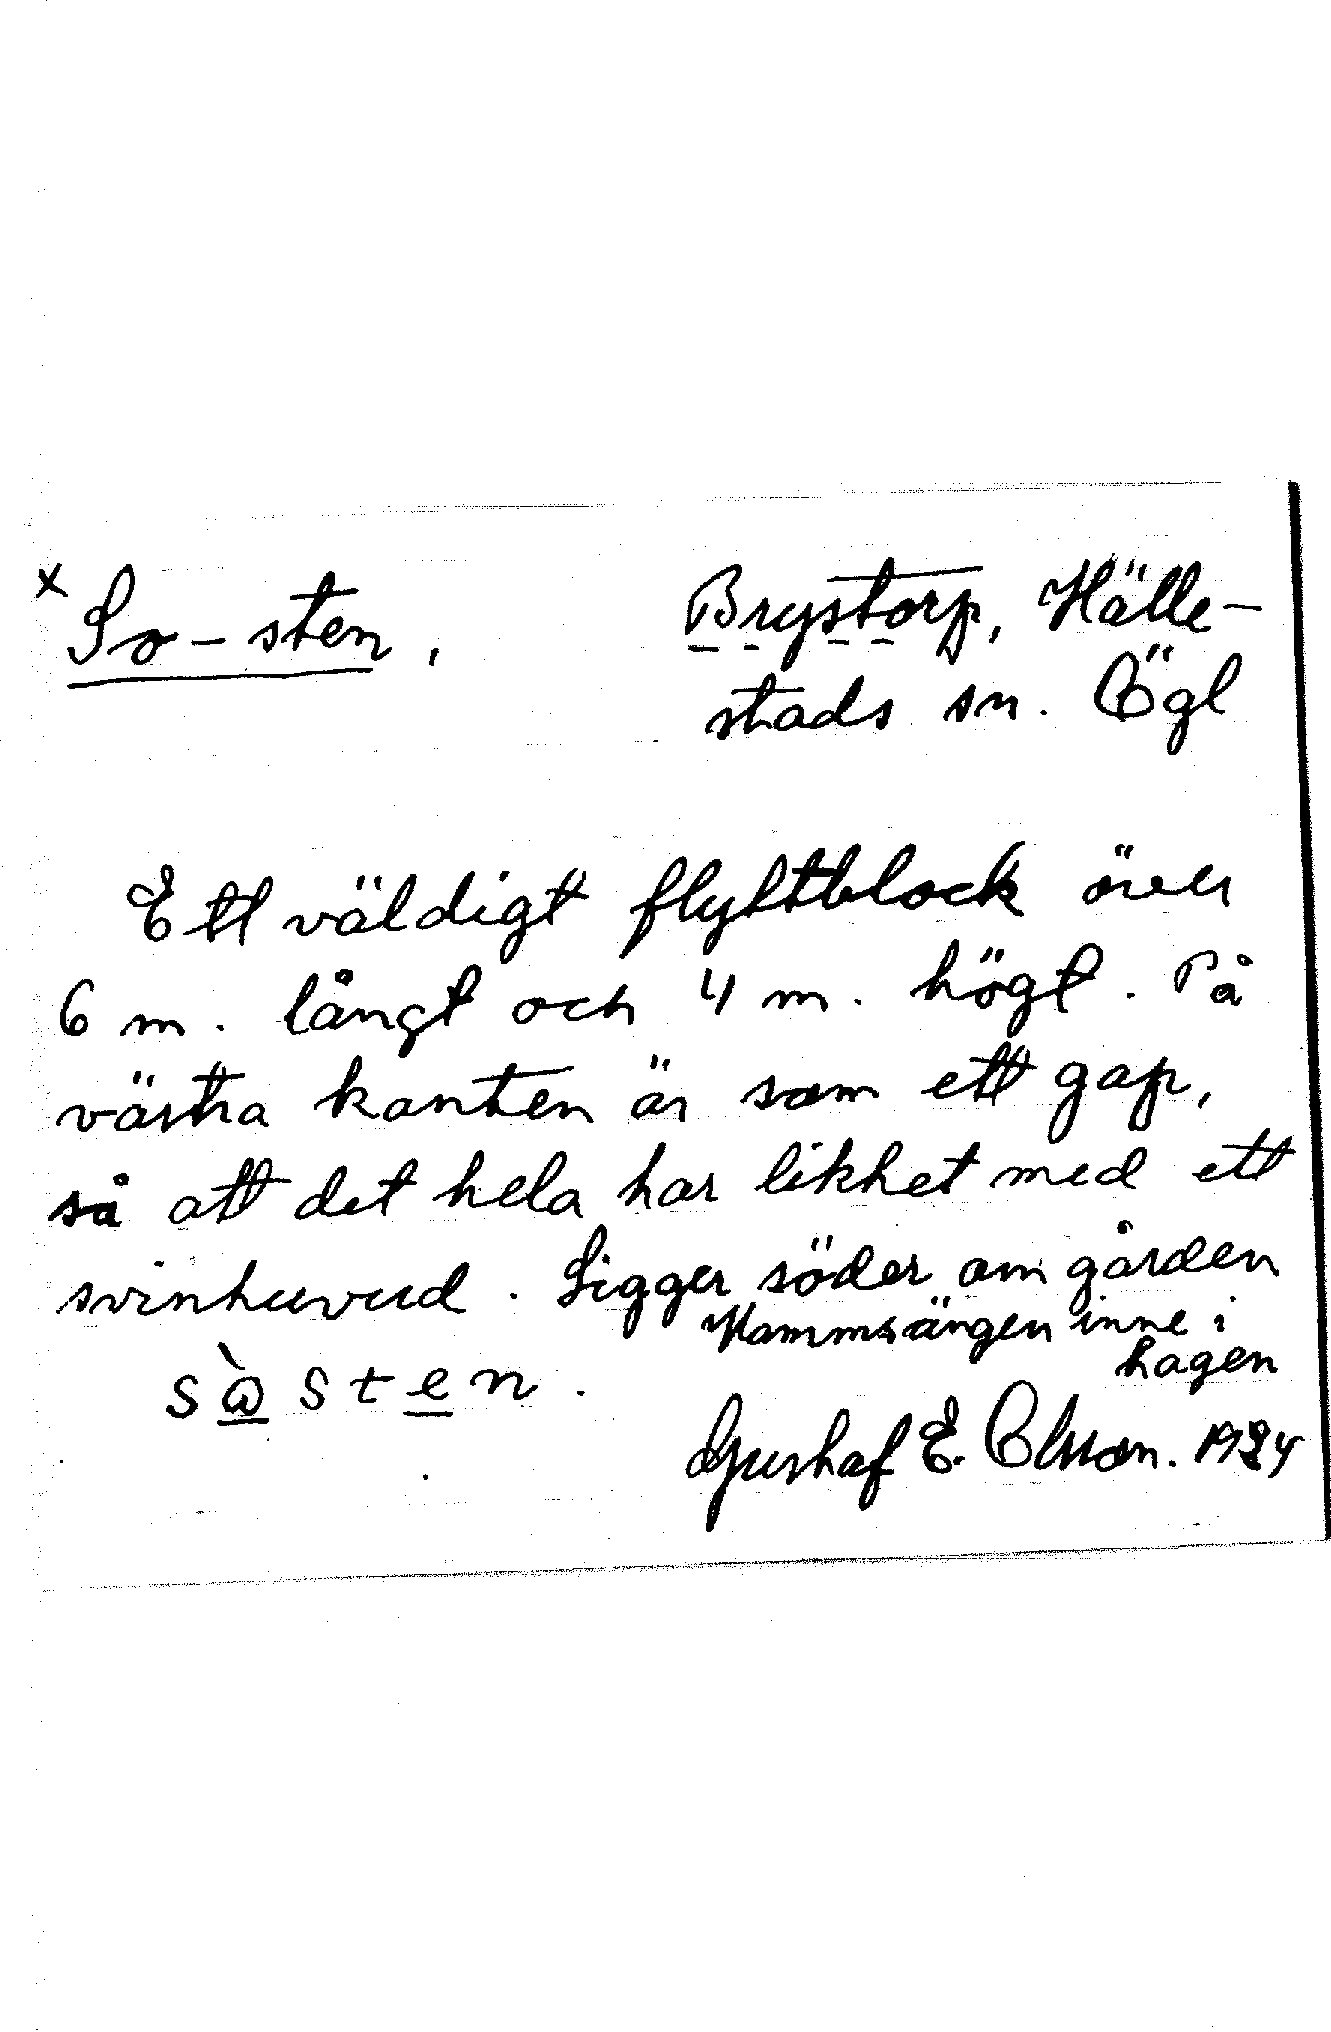 x So-sten,
Brystorp, Hälle-
stads sn. Ögl
Ett väldigt flyttblock över
6 m. långt och 4 m. högt. På
västra kanten är som ett gap,
så att det hela har likhet med ett
svinhuvud. Ligger söder om gården
Hammsängen inne i
hagen
sàsten.
Gustaf E. Olsson. 1924